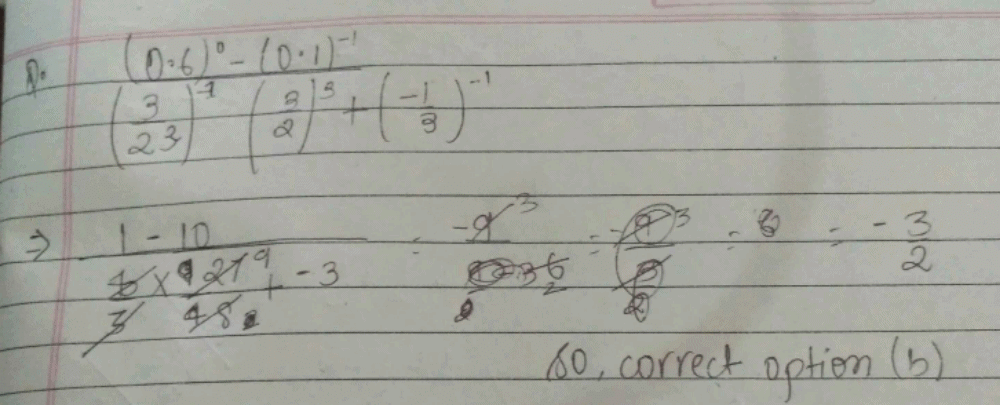 Q. (0.6)⁰ - (0.1)⁻¹
(3/2³)⁻¹ (3/2)³ + (-1/3)⁻¹
⇒ 1 - 10 = -9 3 = 9 3 = = - 3/2
3 27 9 8 + -3 6 2 2
so, correct option (b)